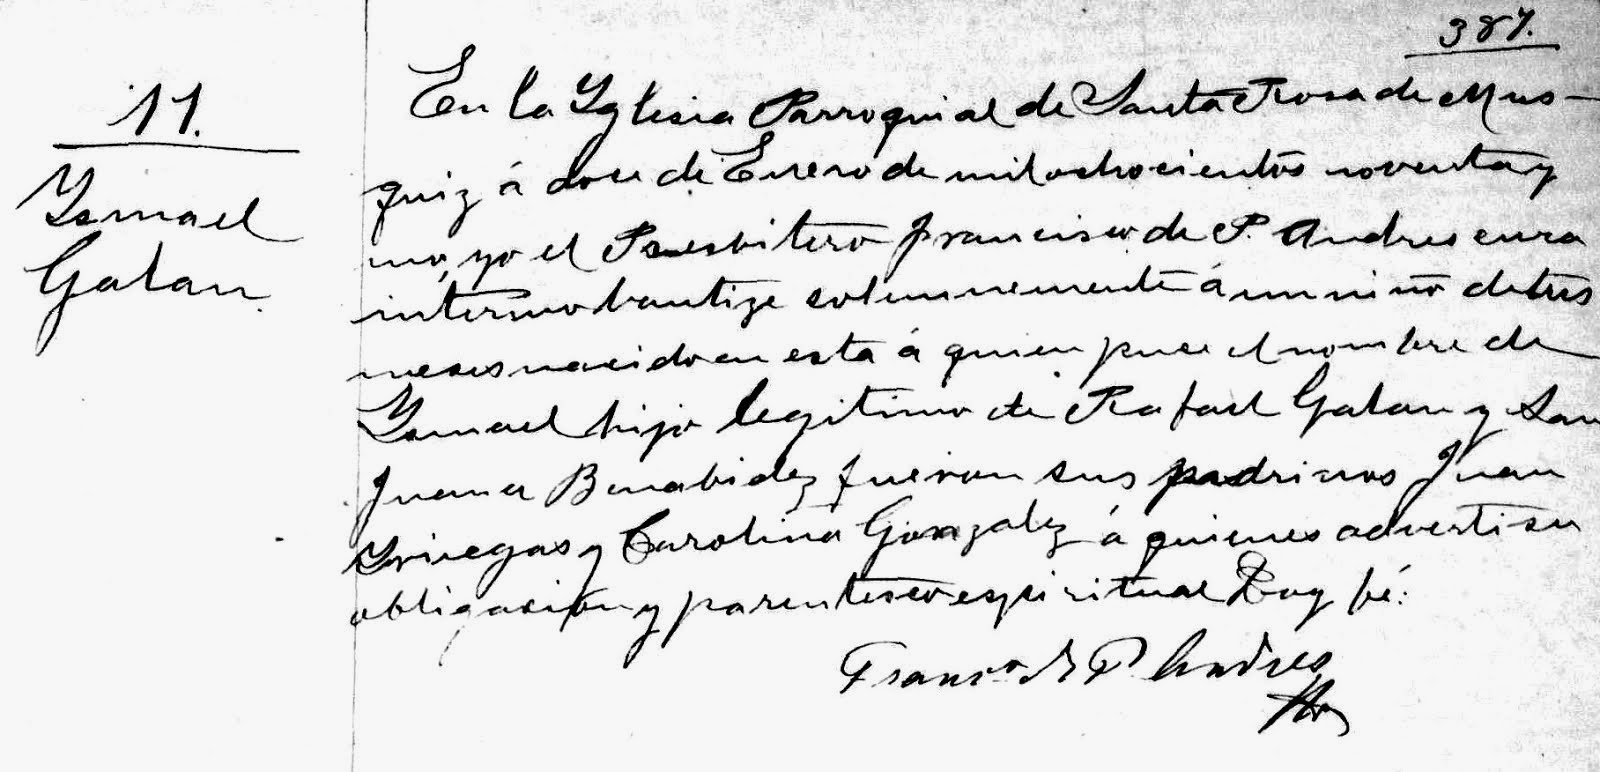 387.
11.
Ismael
Galan
En la Yglesia Parroquial de Santa Rosa de Mus-
quiz á doce de Enero de mil ochocientos noventa y
uno, yo el Presbitero Francisco de P. Andres cura
interino bautize solemnemente á un niño de tres
meses nacido en esta á quien puse el nombre de
Ysmael hijo legitimo de Rafael Galan y
Juana Benabidez fueron sus padrinos Juan
y Carolina Gonzalez á quienes adverti su
obligación y parentesco espiritual Doy fé:
Franco de P. Andres